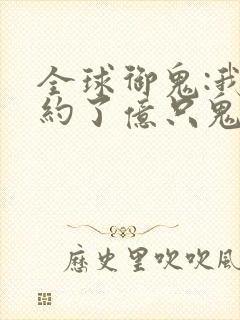 全球御鬼:我
約了億只鬼
歷史里吹吹風